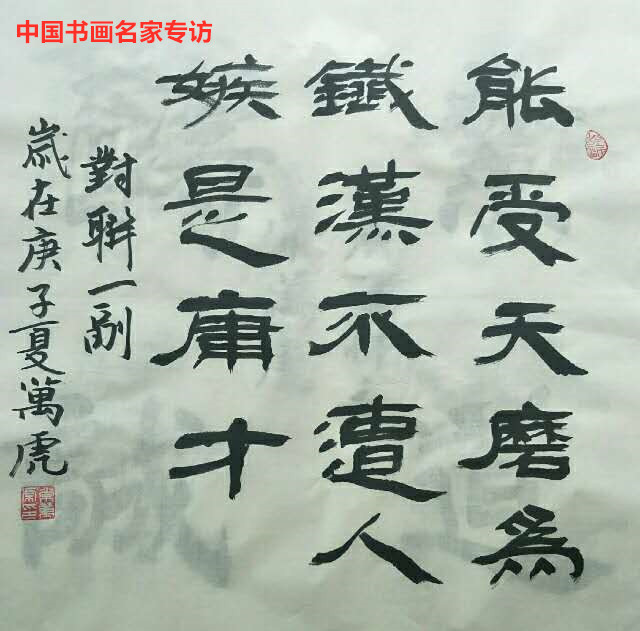 中国书画名家专访
能受天磨为
鐵漢不遭人
嫉是庸才
對聯一副
歲在庚子夏萬虎